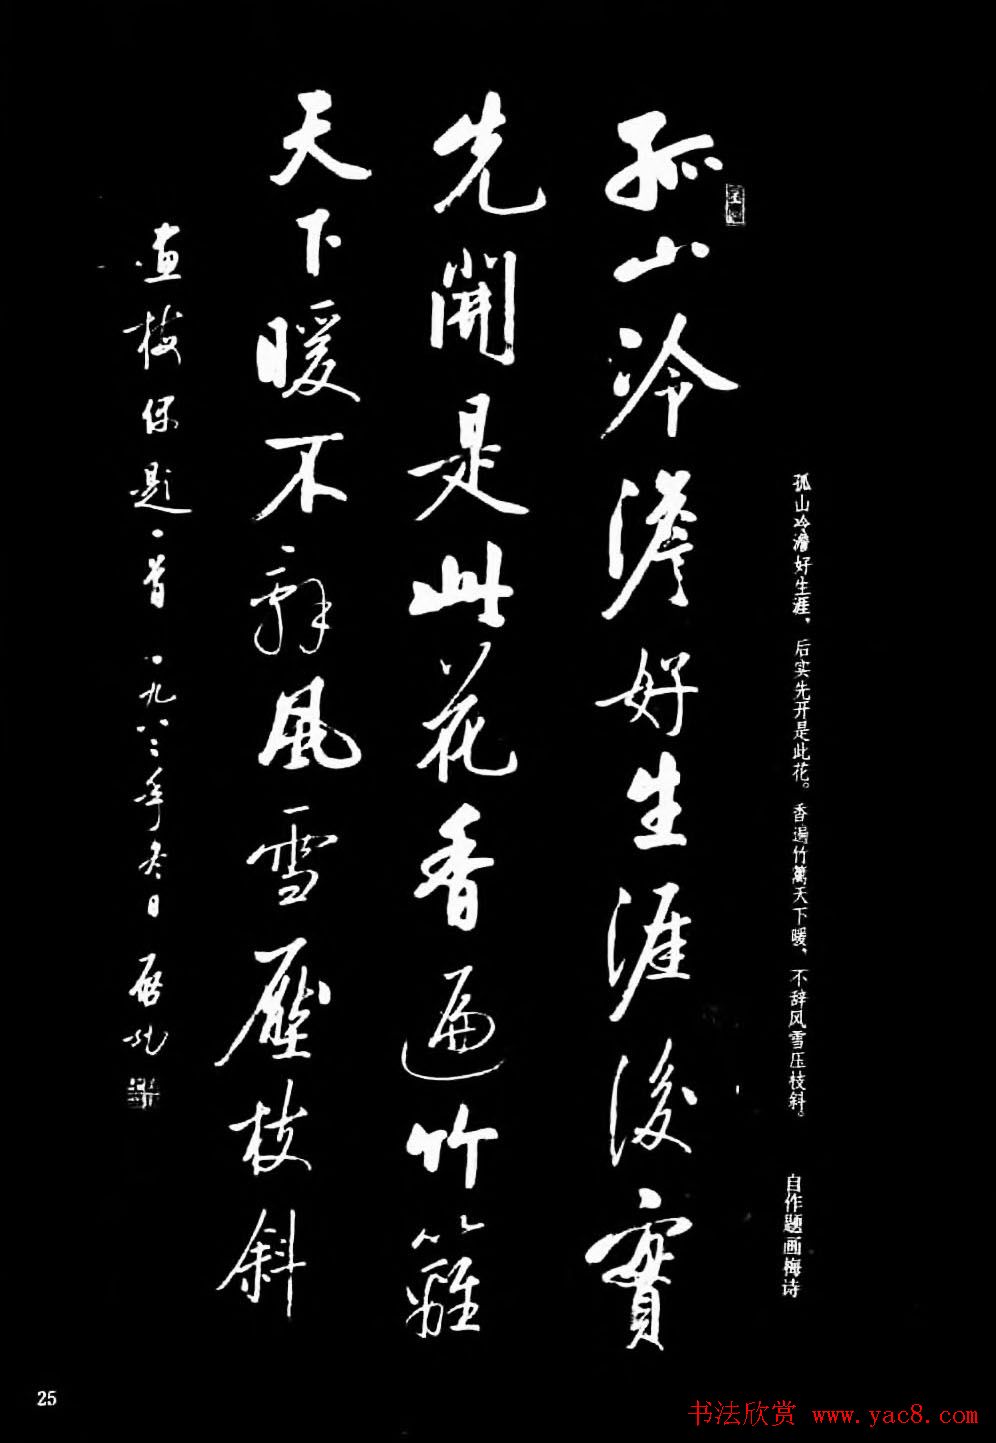 孤山冷澹好生涯，后实先开是此花。香遍竹篱天下暖，不辞风雪压枝斜。
自作题画梅诗
孤山冷澹好生涯後實
先開是此花香遍竹籬
天下暖不辭風雪壓枝斜
畫梅偶題一首 一九八二年冬日 啟功
25
书法欣赏 www.yac8.com